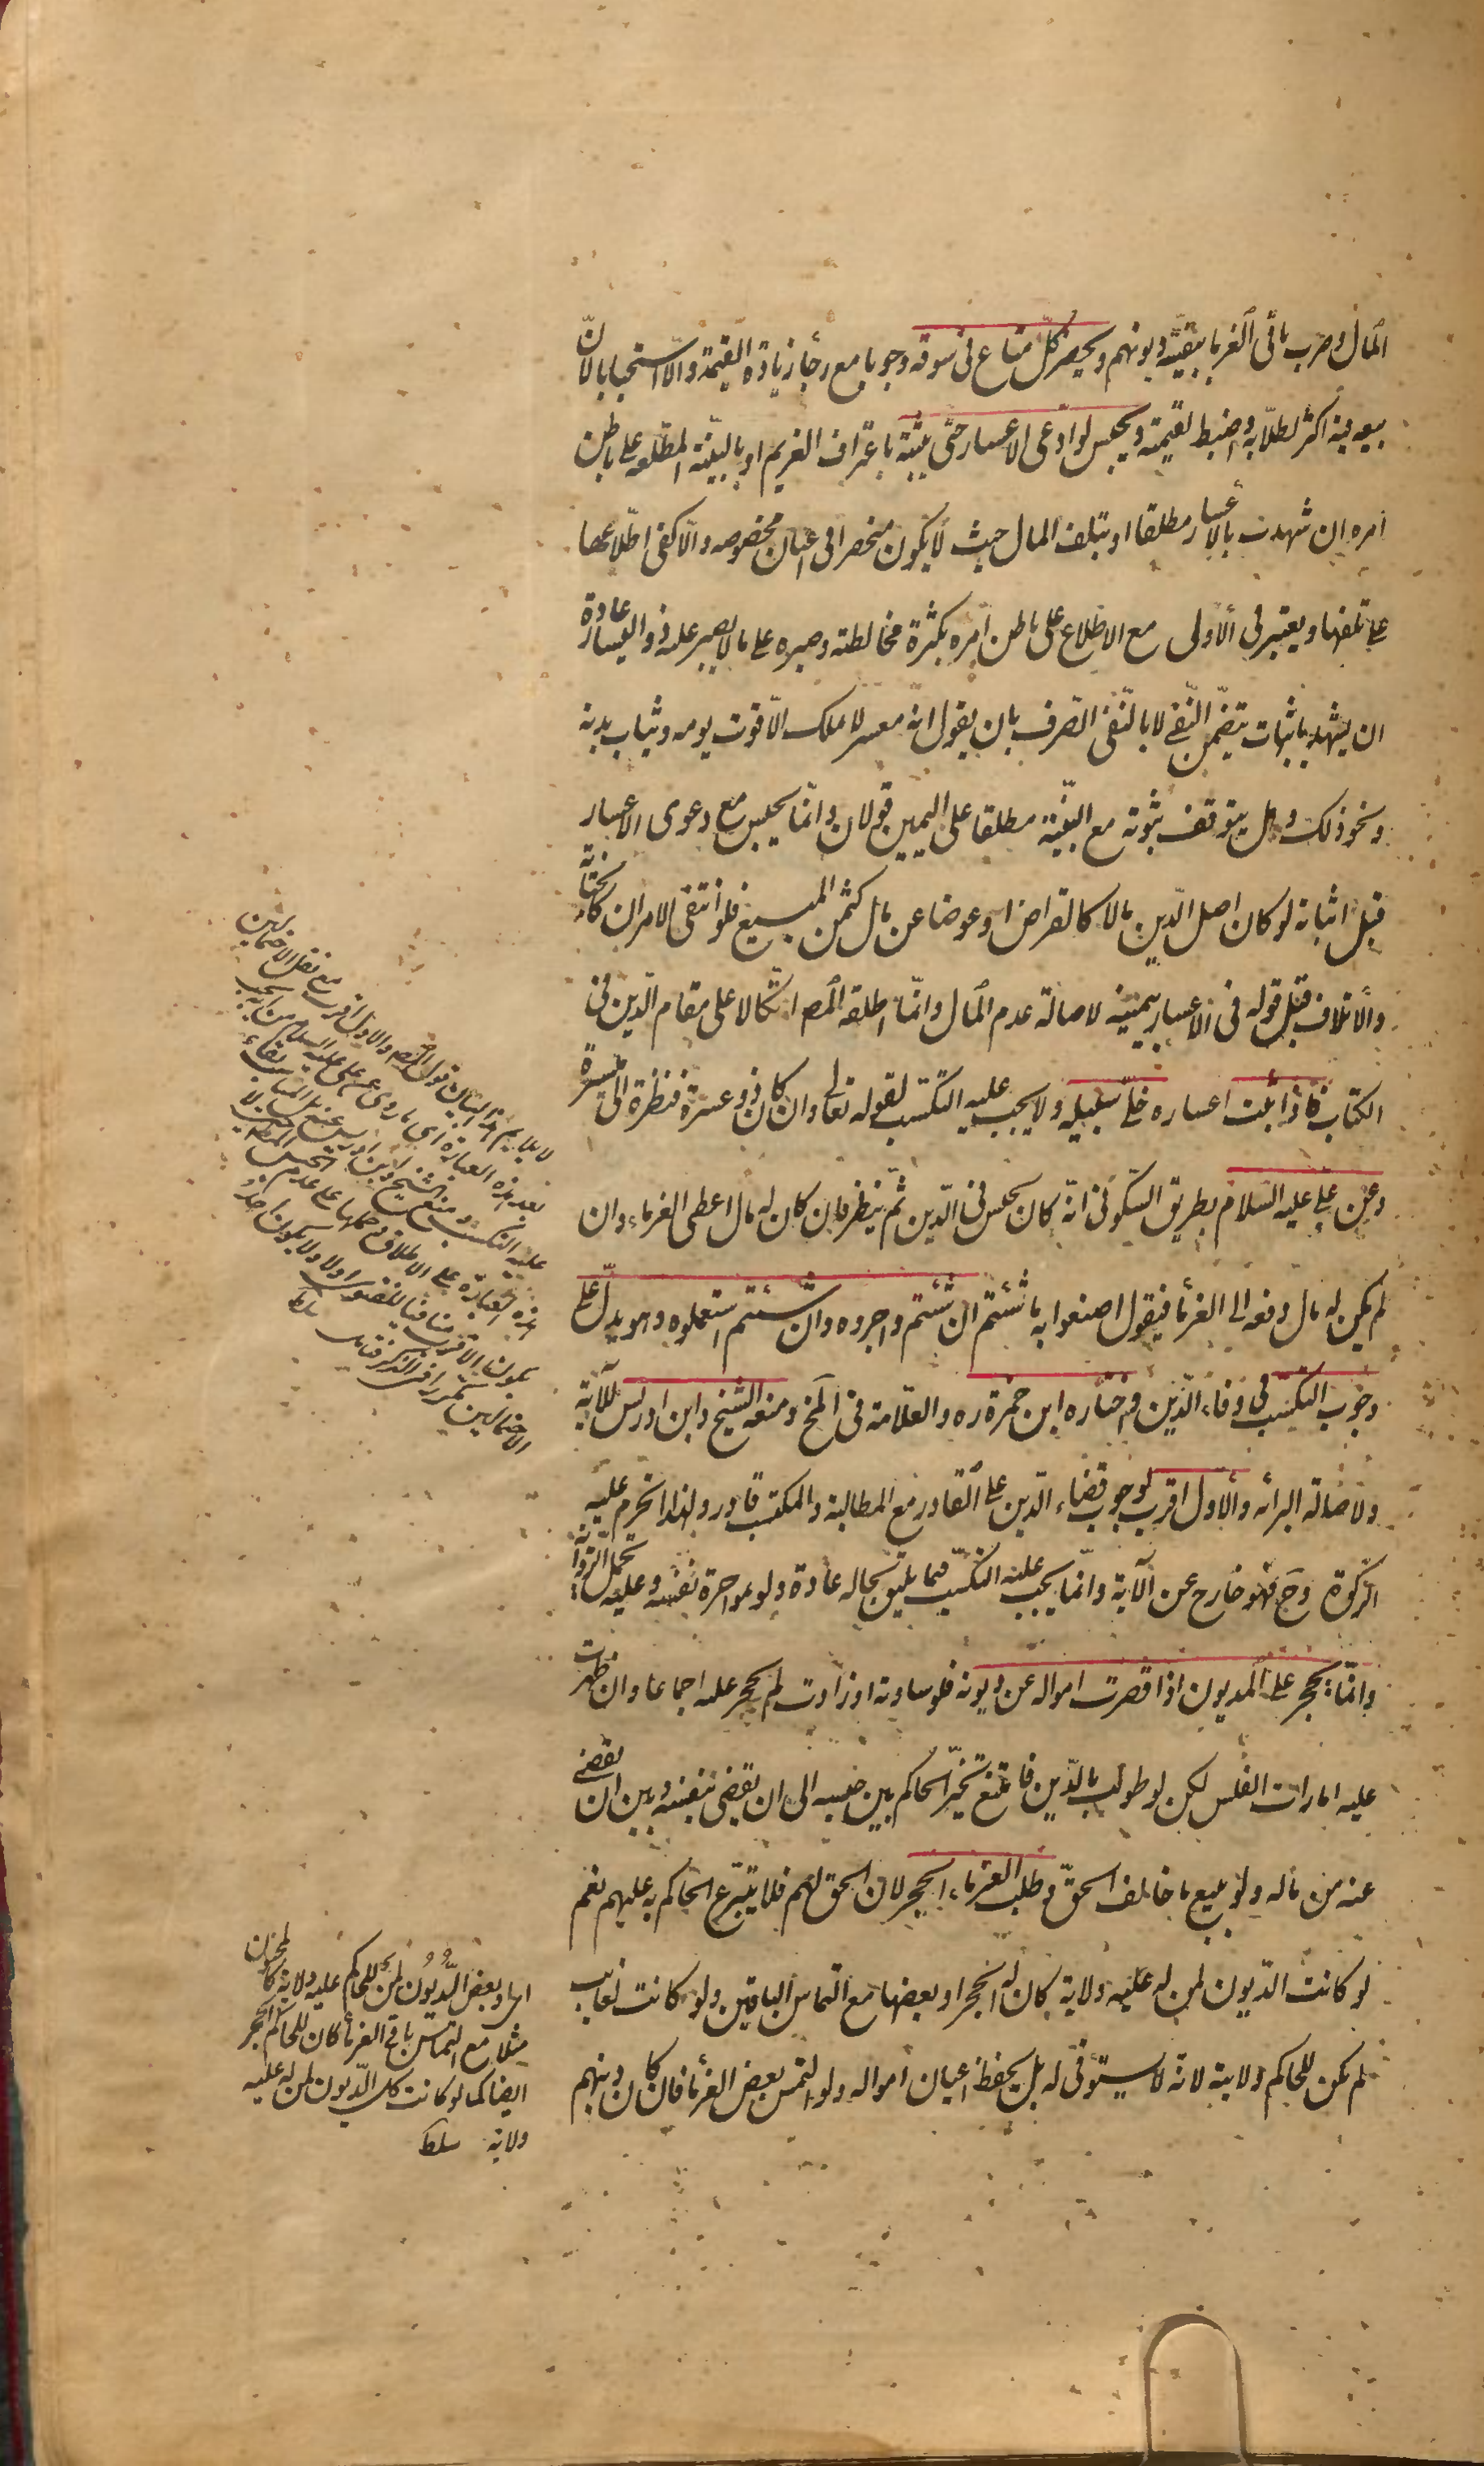 المال وضرب باقى الغرما ببقية ديونهم ويحضر كل متاع فى سوقه وجوبا مع رجأ زيادة القيمة والا استحبابا لان
بيعه فيه اكثر لطلابه واضبط لقيمته ويحبس لو ادعى الاعسار حتى يثبته باعتراف الغريم او بالبينة المطلعه على باطن
امره ان شهدت بالاعسار مطلقا او بتلف المال حيث لا يكون منحصرا فى اعيان مخصوصه والا كفى اطلاعها
على تلفها ويعتبر فى الاولى مع الاطلاع على باطن امره بكثرة مخالطته وصبره على ما لا يصبر عليه ذوو اليسار عادة
ان يشهد باثبات يتضمن النفى لا بالنفى الصرف بان يقول انه معسر لا يملك الا قوت يومه وثياب بدنه
ونحو ذلك وهل يتوقف ثبوته مع البينة مطلقا على اليمين قولان وانما يحبس مع دعوى الاعسار
قبل اثباته لو كان اصل الدين مالا كالقراض او عوضا عن مال كثمن المبيع فلو انتفى الامران كالجناية
والاتلاف قبل قوله فى الاعسار بيمينه لاصالة عدم المال وانما اطلقه المص اتكالا على مقام الدين فى
الكتاب فاذا ثبت اعساره خلى سبيله ولا يجب عليه التكسب لقوله تعالى وان كان ذو عسرة فنظرة الى ميسرة
وعن على عليه السلام بطريق السكونى انه كان يحبس فى الدين ثم ينظر فان كان له مال اعطى الغرماء وان
لم يكن له مال دفعه الى الغرمأ فيقول اصنعوا به ما شئتم ان شئتم واجروه وان شئتم استعملوه وهو يدل على
وجوب التكسب فى وفاء الدين واختاره ابن حمزة ره والعلامة فى المخ ومنعه الشيخ وابن ادريس للآية
ولاصالة البرائه والاول اقرب لوجوب قضاء الدين على القادر مع المطالبة والمكتسب قادر ولهذا تحرم عليه
الزكوة وح فهو خارج عن الآية وانما يجب عليه التكسب فيما يليق بحاله عادة ولو بمواجرة نفسه وعليه تحمل الرواية
وانما يحجر على المديون اذا قصرت امواله عن ديونه فلو ساوته او زادت لم يحجر عليه اجماعا وان ظهرت
عليه امارات الفلس لكن لو طولب بالدين فامتنع تخير الحاكم بين حبسه الى ان يقضى بنفسه وبين ان يقضى
عنه من ماله ولو ببيع ما خالف الحق وطلب الغرماء الحجر لان الحق لهم فلا يتبرع الحاكم به عليهم نعم
لو كانت الديون لمن له عليه ولاية كان له الحجر او بعضها مع التماس الباقين ولو كانت لغايب
لم يكن للحاكم ولايته لانه لا يستوفى له بل يحفظ اعيان امواله ولو التمس بعض الغرمأ فان كان دينهم
لا يلايم هذا البيان قول المص والاول اقرب مع نقل الاحتمالين
بعد هذه العبارة اى ما روى عن على عليه السلام من انه يجب
عليه التكسب ومنع الشيخ وابن ادريس
هذه العبارة على الاطلاق وحملها على عدم
بكون الاقرب منافيا للفتوى اولا ولا يكون احد
الاحتمالين مكررا فى الذكر سلط
اى او بعض الديون لمن للحاكم عليه ولاية كالمجنون
مثلا مع التماس باقى الغرمأ كان للحاكم الحجر
ايضا كما لو كانت كل الديون لمن له عليه
ولاية سلط